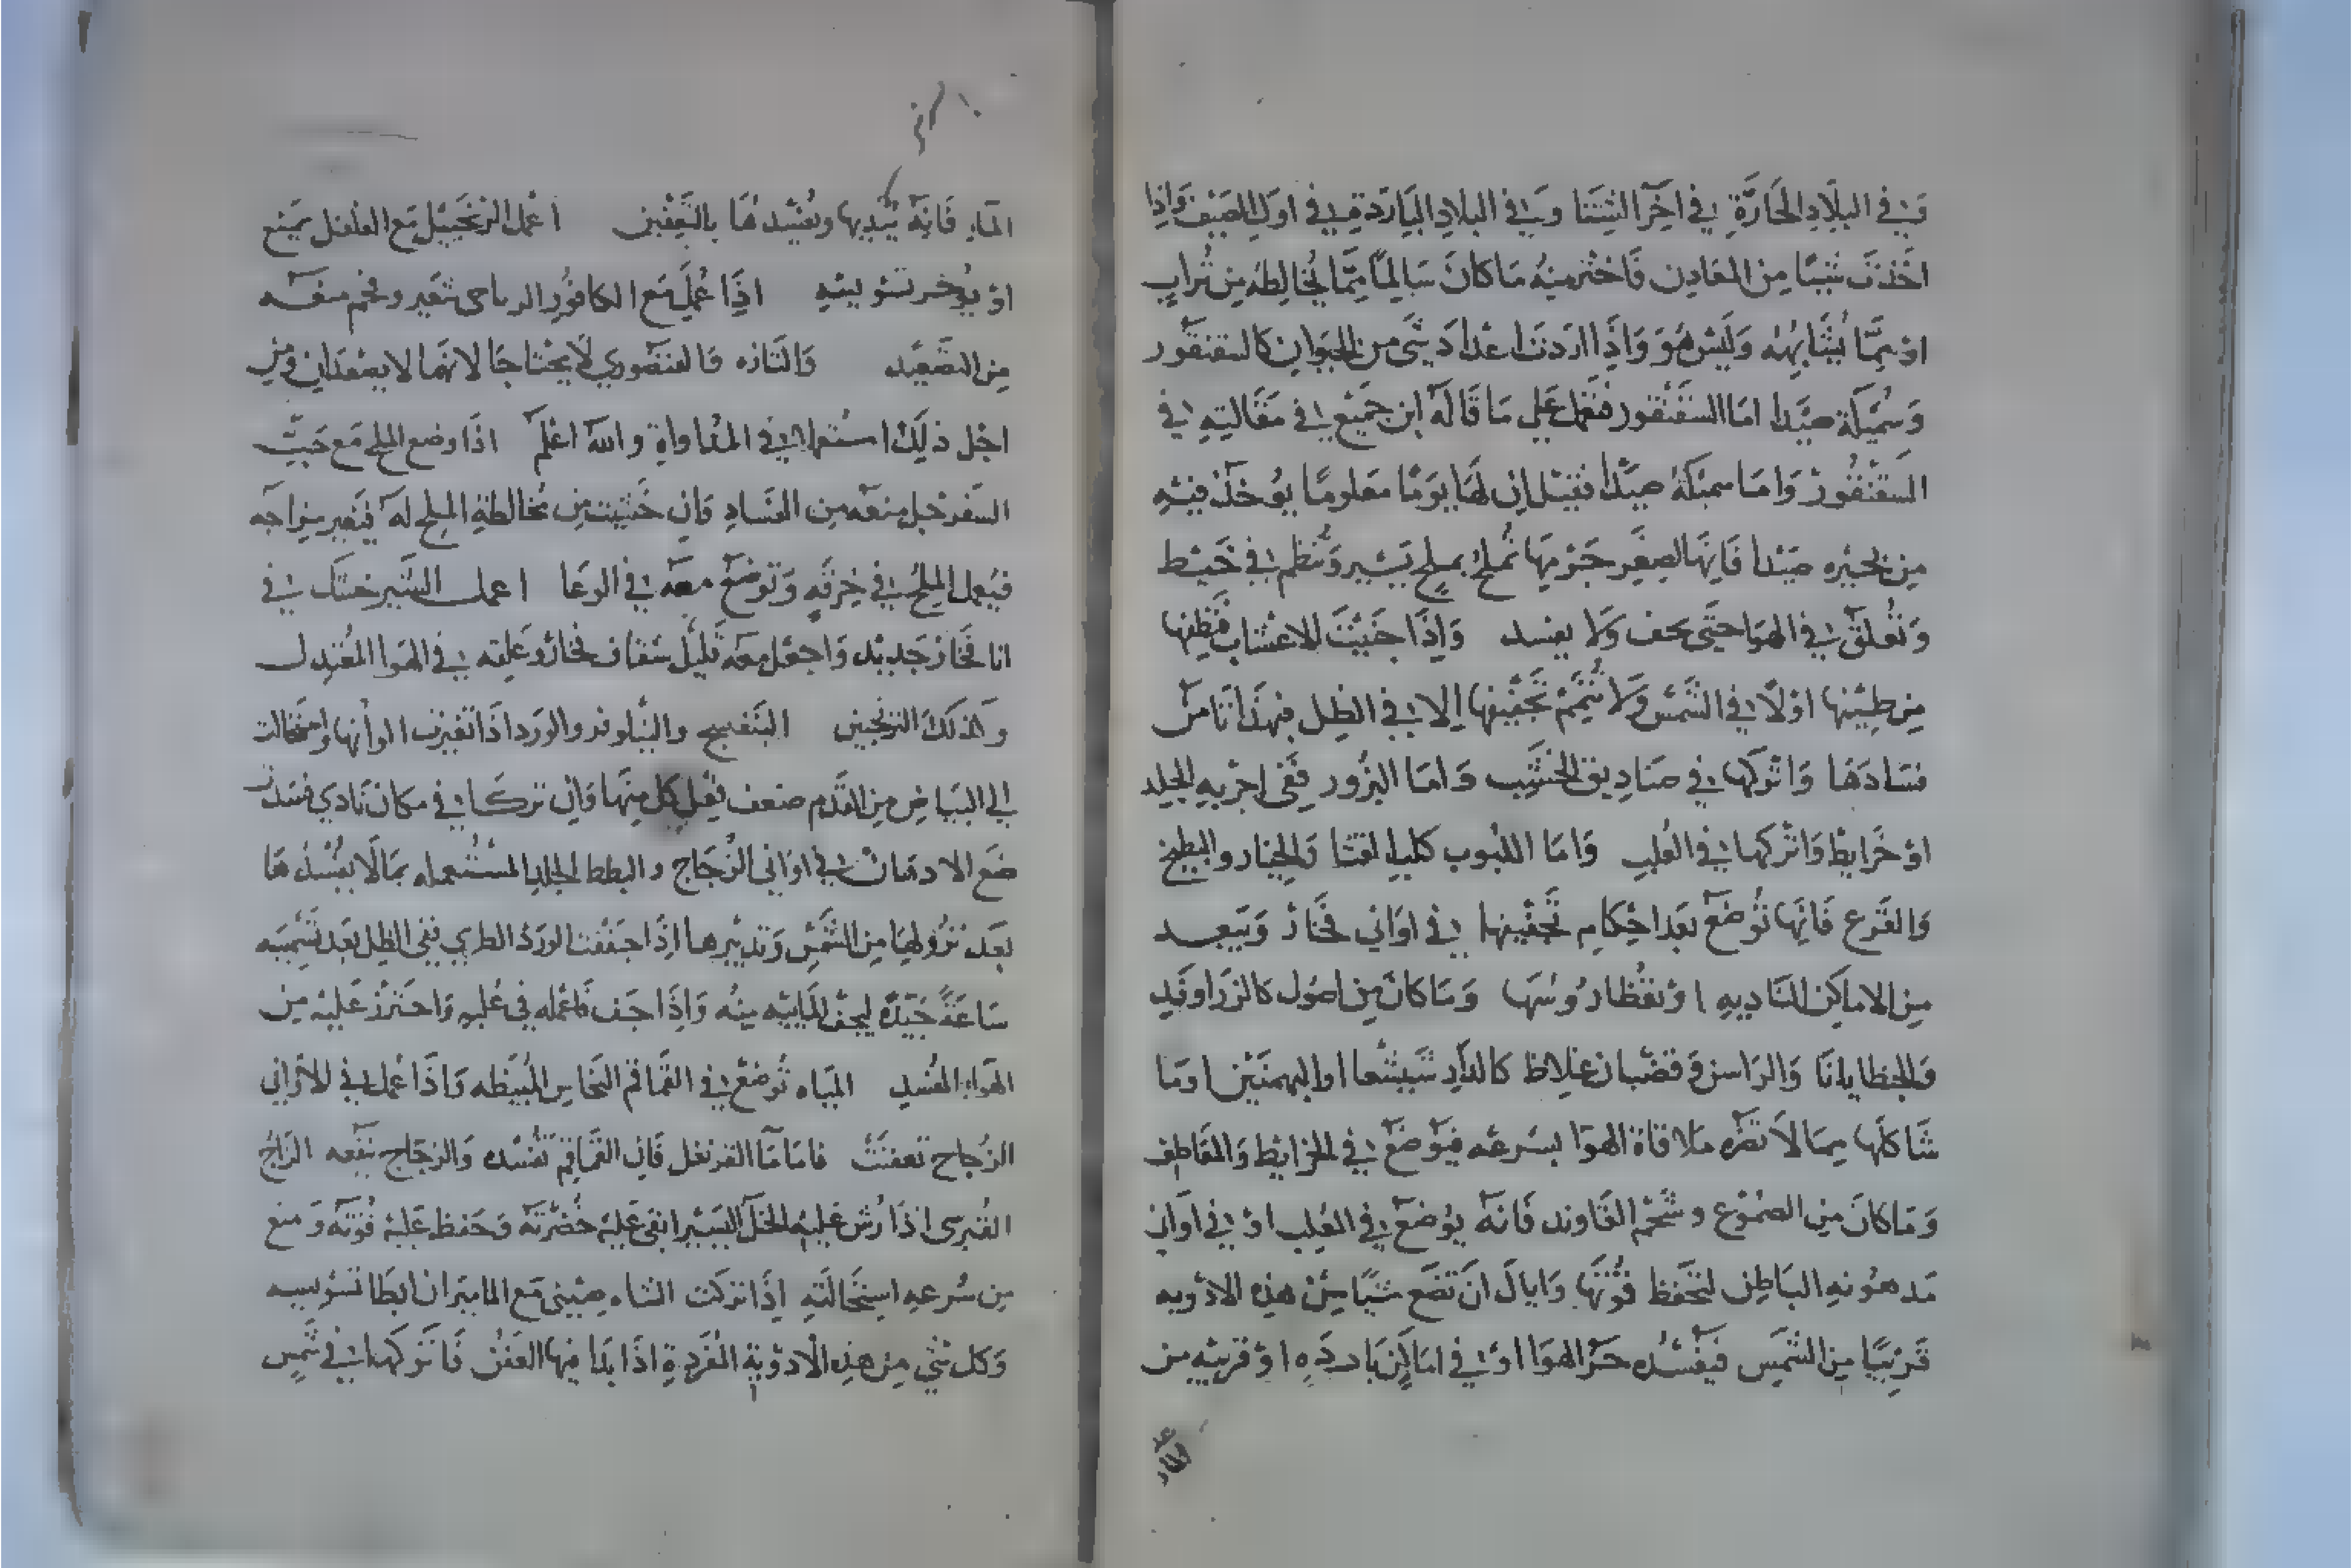 وفي البلاد الحارة في اخر الشتا وفي البلاد الباردة في اول الصيف واذا
اخذت شيًا من المعادن فاختر منه ما كان سالمًا مما يخالطه من تراب
او مما يشابهه وليس هو واذا اردت اعداد شى من الحيوان كالسقنقور
وسميكة صيدا اما السقنقور فتعمل على ما قاله ابن جميع في مقالته في
السقنقور واما سميكة صيدا فقيل ان لها يومًا معلومًا يوخذ فيه
من بحيره صيدا فانها لصغر جرمها تملح بملح يسير وتنظم في خيط
وتعلق في الهوا حتى يجف ولا يفسد واذا جنيت الاعشاب فنظفها
من طينها اولًا في الشمس ولا تتمم تجفيفها الا في الظل فبهذا تامن
فسادها واتركها في صناديق الخشب واما البزور ففى اجربه الجلد
او خرايط واتركها في العلب واما اللبوب كلب القثا والخيار والبطيخ
والقرع فانها توضع بعد احكام تجفيفها في اواني فخار وتبعد
من الاماكن الناديه او تغطا روسها وما كان من اصول كالزراوند
والجنطيانا والراسن وقضبان غلاظ كالدار شيشعا او البهمنين او ما
شاكلها مما لا تضره ملاقاة الهوا بسرعه فيوضع في الخرايط والقفاطف
وما كان من الصموغ وشحم القاوند فانه يوضع في العلب او في اوان
مدهونه الباطن لتحفظ قوتها واياك ان تضع شيًا من هذه الادويه
قريبًا من الشمس فيفسده حر الهوا او في اماكن بارده او قريبه من
الماء فانه ينديها ويفسدها بالتعفين اعمل الزنجبيل مع الفلفل يمنع
او يوخر تسويسه اذا عمل مع الكافور الرباحى شعير وفحم منعه
من التصعيد والتازه والفنصوري لا يحتاجا لانهما لا يصعدان ومن
اجل ذلك استعمالها في المداواة والله اعلم اذا وضع الملح مع حب
السفرجل منعه من الفساد وان خشيت من مخالطة الملح له فتغير مزاجه
فيعمل الملح في خرقه وتوضع معه في الوعا اعمل الشير خشك في
انا فخار جديد واجعل معه قليل شقاف فخار وعلقه في الهوا المعتدل
وكذلك الترنجبين البنفسج والنيلوفر والورد اذا تغيرت الوانها واستحالت
الى البياض من القدم ضعف فعل كل منها وان تركا في مكان نادي فسدت
ضع الادهان في اواني الزجاج والبطط الجلد المستعمله بما لا يفسدها
بعد نزولها من الشمس وتدبيرها اذا جففت الورد الطري ففى الظل بعد تشميسه
ساعة جيدة ليجف المايية منه واذا جف فاعمله في علبه واحترز عليه من
الهواء المفسد المياه توضع في القماقم النحاس المبيظه واذا عمل في الاواني
الزجاج تعفنت فاما ما القرنفل فان القماقم تفسده والزجاج ينفعه الزاج
القبرسى اذا رش عليه الخل اليسير ابقى عليه خضرته وحفظ عليه قوته ومنع
من سرعه استحالته اذا تركت الشاه صينى مع الماميران ابطا تسويسه
وكل شي من هذه الادوية المفردة اذا بدا فيها العفن فاتركها في شمس